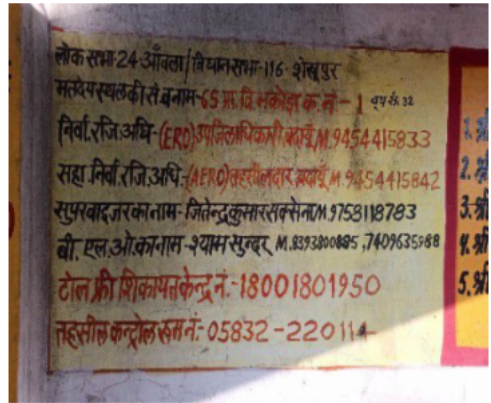 लोक सभा-24-आँवला/विधान सभा-116-शेखूपुर
मतदेय स्थल की सं व नाम-65 प्रा. वि. क. नं.-1 बूथ सं. 32
निर्वा. रजि. अधि.-(ERO) उपजिलाधिकारी बदायूँ M.9454415833
सहा. निर्वा. रजि. अधि.-(AERO) तहसीलदार बदायूँ M.9454415842
सुपरवाइजर का नाम-जितेन्द्र कुमार सक्सेना M.9758118783
बी. एल. ओ. का नाम-श्याम सुन्दर M. 7409635988
टोल फ्री शिकायत केन्द्र नं.-18001801950
तहसील कन्ट्रोल रूम नं.-05832-220114
1. श्री
2. श्री
3. श्री
4. श्री
5. श्री